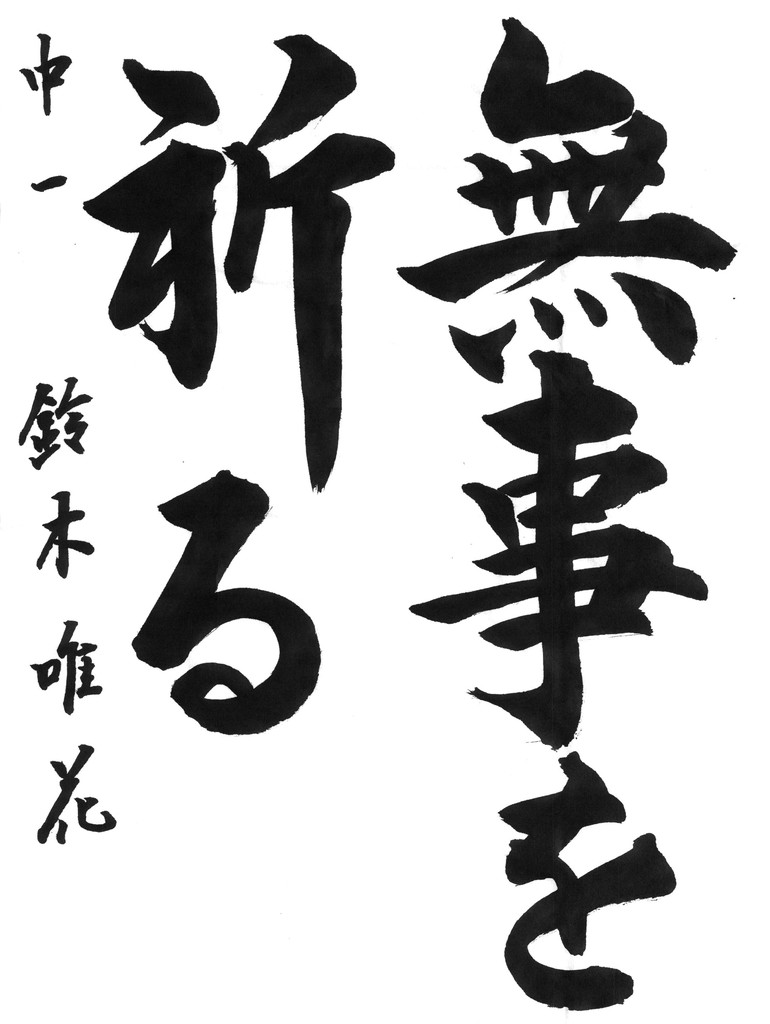 無事を
祈る
中一 鈴木唯花